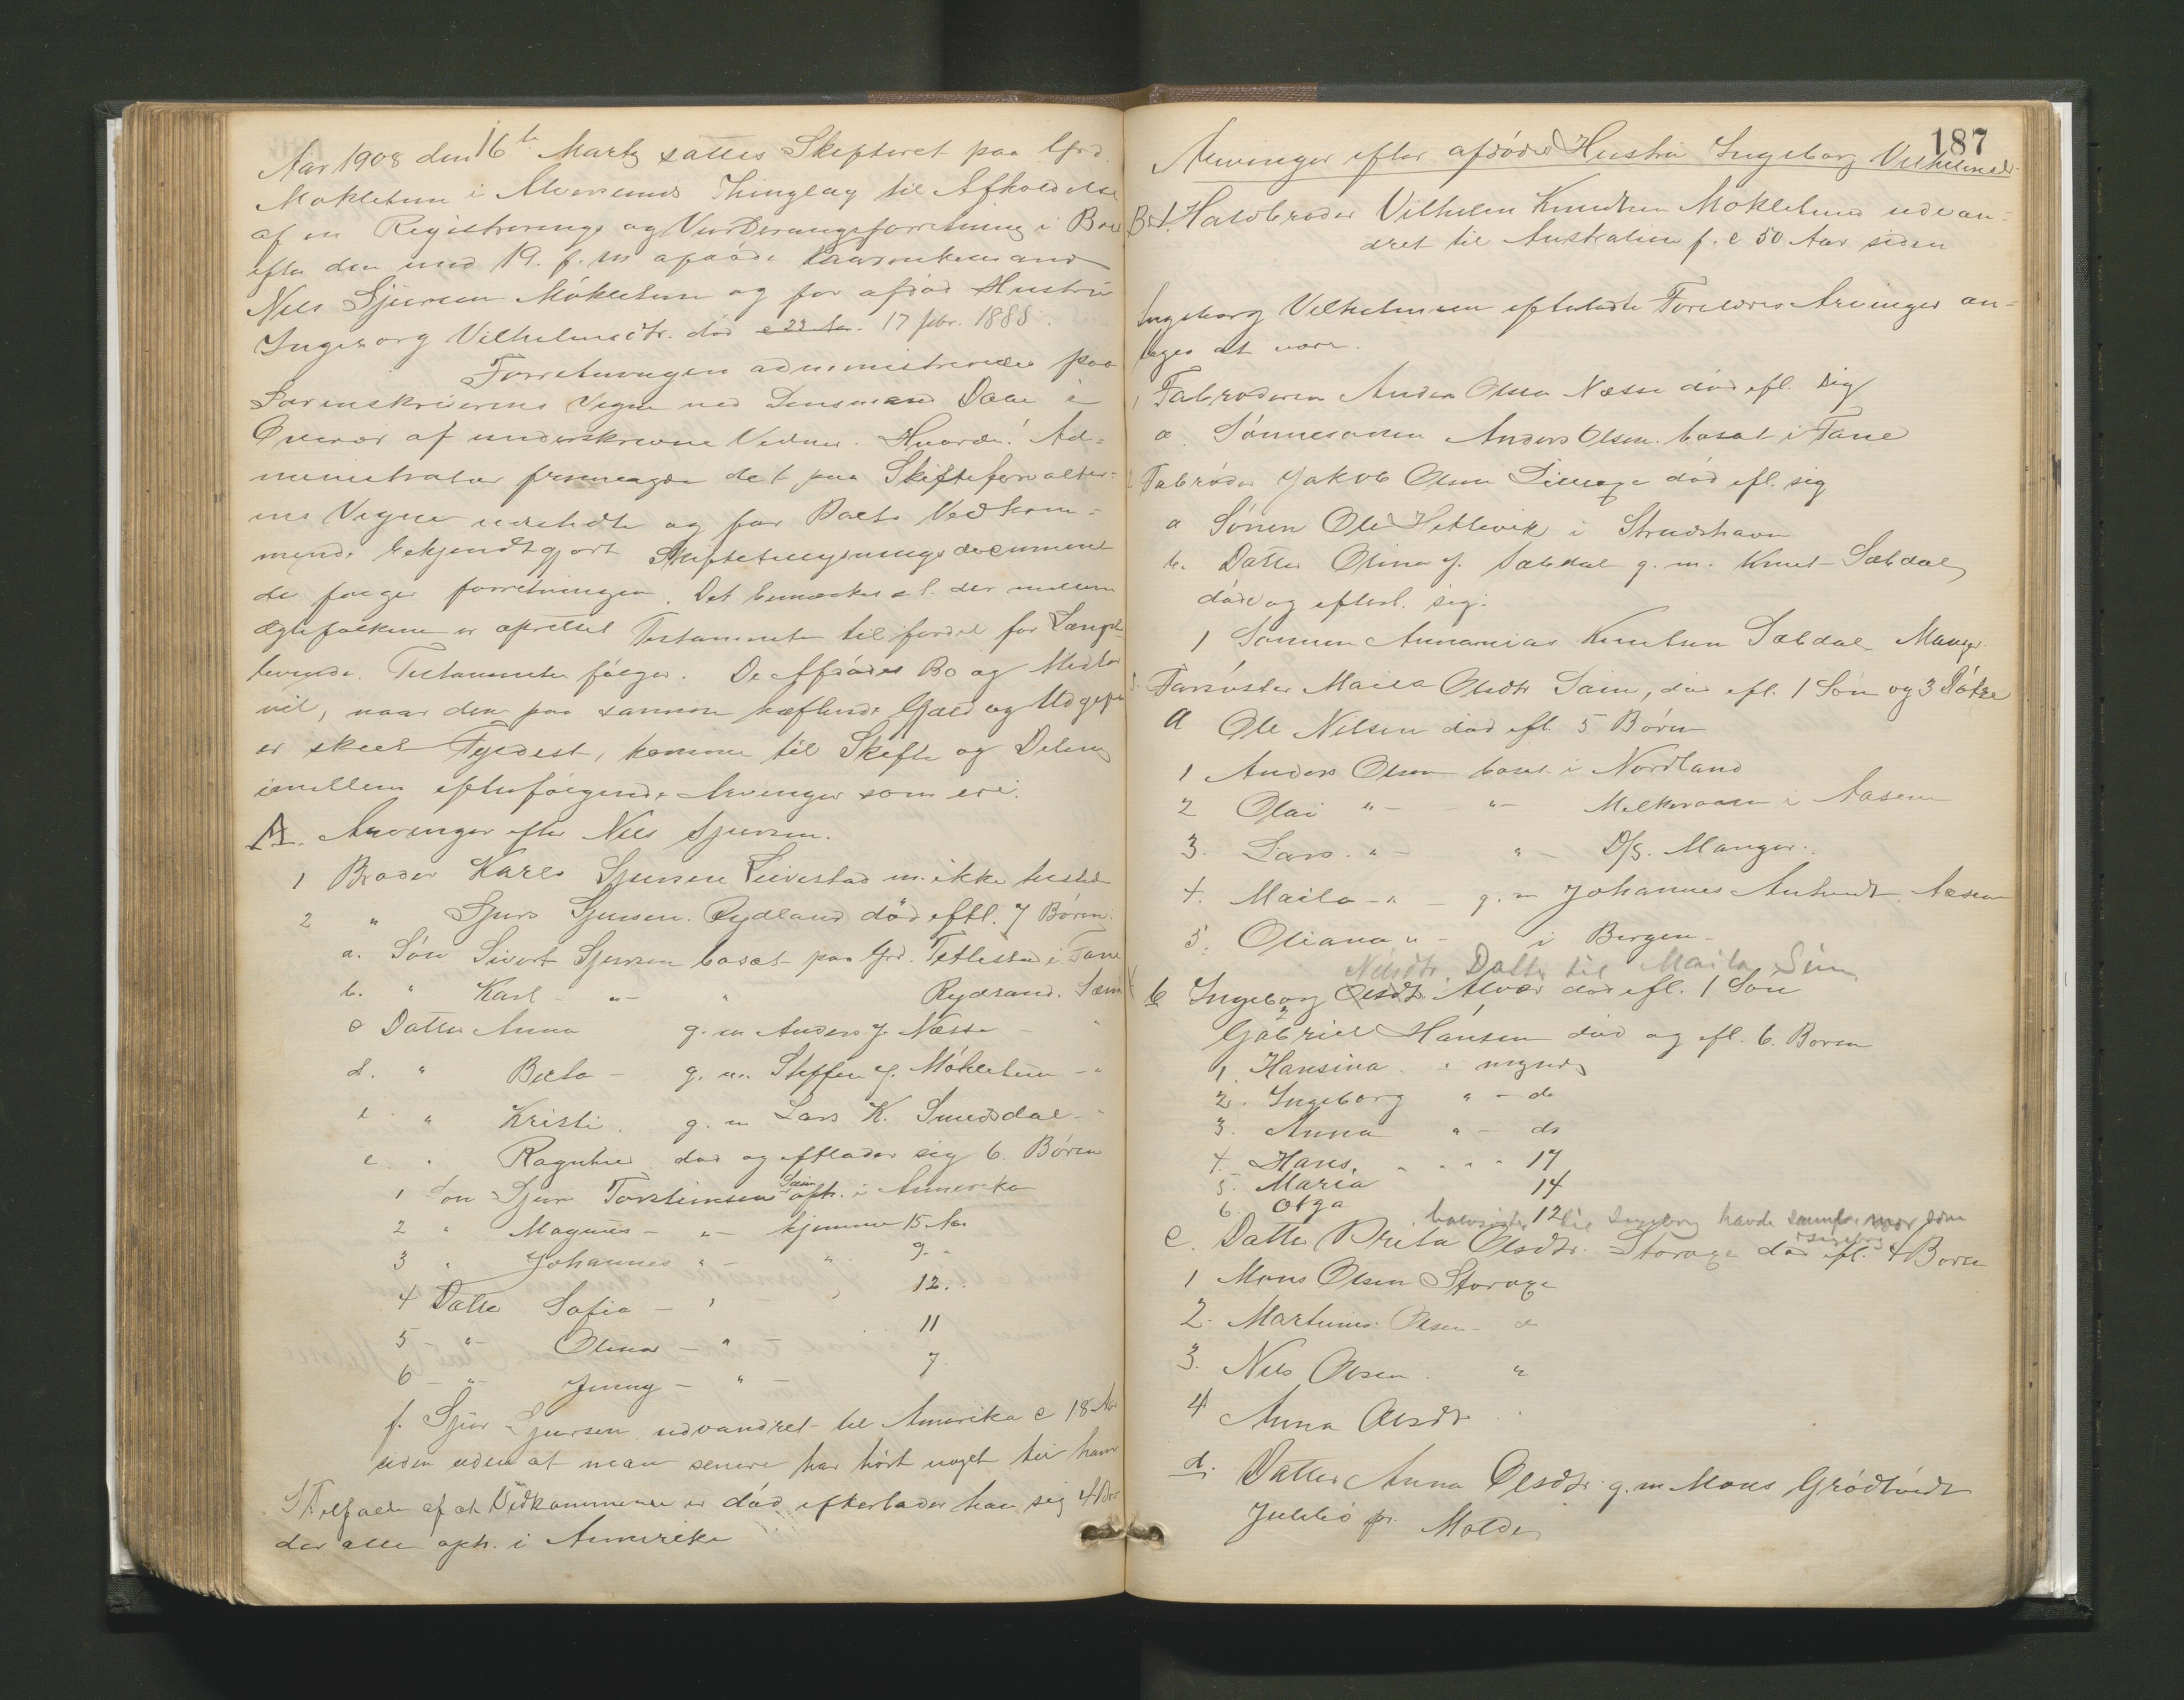 Aar 1908 den 16te Marts sattes Skifteret paa Grd.
Mökletun i Alversunds Thinglag til Afholdelse
af en Registrerings og Vurderingsforretning i Boet
efter den med 19. f. m afdöde Kaarenkemand
Nils Sjursen Mökletun og for afdöd Hustru
Ingeborg Vilhelmsdtr. död c 23 Aar. 17 febr. 1888.
Forretningen administreredes paa
Sorenskriverens Vegne ved Lensmand Dale i
Overvær af underskrevne Vidner. Hvorda! Ad=
ministrator fremlagde det paa Skifteforvalter=
ens Vegne udstedte og for Boets Vedkom=
mende bekjendtgjort Skiftetilsynings document
der følger forretningen. Det bemærkes at der mellem
Ægtefolkene er oprettet Testamente til fordel for Længst=
levende. Testamentet fölger. De Afdödes Bo og Midler
vil, naar den paa samme hæftende Gjæld og Udgifter
er skeet Fyldest, komme til Skifte og Deling
imellem efterfölgende Arvinger som ere:
A. Arvinger efter Nils Sjursen.
1 Broder Karl Sjursen Leivestad m. ikke tilstede
2 " Sjurs Sjursen Rydland död eftl. 7 Börn.
a. Sön Sivert Sjursen bosat paa Grd. Tetlestad i Fane
b. " Karl - " - " Rydland. Sæim
c Datter Anna g. m Anders J. Næsse - "
d. " Berta - g. m. Steffen J. Mökletun - "
e " Kristi. g. m Lars K. Smedsdal - "
e. " Ragnhild död og eftlader sig 6. Börn
1 Sön Sjur Torsteinsen Sæim oph. i Amerika
2 " Magnus - " - hjemme 15 Aar
3 " Johannes " - " 9. "
4 Datter Sofie - " - " 12.
5 - " - Olina - " - 11
6 - " - Jenny - " - 7
f. Sjur Sjursen udvandret til Amerika c 18 Aar
siden uden at man senere har hört noget til ham
I Tilfælde af at Vedkommende er död efterlader han sig 4 Börn
der alle oph. i Amerika
187
Arvinger efter afdöde Hustru Ingeborg Vilhelmsdtr.
B. 1. Halvbroder Vilhelm Knudsen Mökletun udvan=
dret til Australien f. c 50 Aar siden
Ingeborg Vilhelmsen efterladte Forældres Arvinger an=
tages at være.
1 Fabroderen Anders Olsen Næsse död efl. sig
a. Sönnesönnen Anders Olsen. bosat i Fane
2 Fabroder Jakob Olsen död efl. sig
a Sönnen Ole Hetlevik i Strudshavn
b. Datter Olina J. Sæbdal g. m. Knut Sæbdal
död og efterl. sig.
1 Sönnen Annanias Knutsen Sæbdal Manger.
3. Farsöster Maila Olsdtr Saim, död efl. 1 Sön og 3 Dötre
a Ole Nilsen död efl. 5 Börn
1 Anders Olsen bosat i Nordland
2 Olai " - - " - i Aasene
3. Lars. " - " - D/S. Manger.
4. Maila - " - g. m Johannes Aasene
5. Oliana " - i Bergen -
Nilsdtr. Datter til Maila Seim
b Ingeborg Olsdtr Alver död efl. 1 Sön
Gabriel Hansen död og efl. 6. Börn
1. Hansina. " myndig
2. Ingeborg " - do
3. Anna " - do
4. Hans. " " " " 17
5. Maria 14
6. Olga 12
halvsöster til Ingeborg havde samme mor som
Ingeborg
c. Datter Brita Olsdtr. Storoxe död efl. 4 Börn
1 Mons Olsen Storoxe
2. Martinus Olsen - "
3. Nils Olsen. "
4 Anna Olsdtr "
d. Datter Anna Olsdtr. g. m Mons Grödtveidt
Julebö pr. Molde